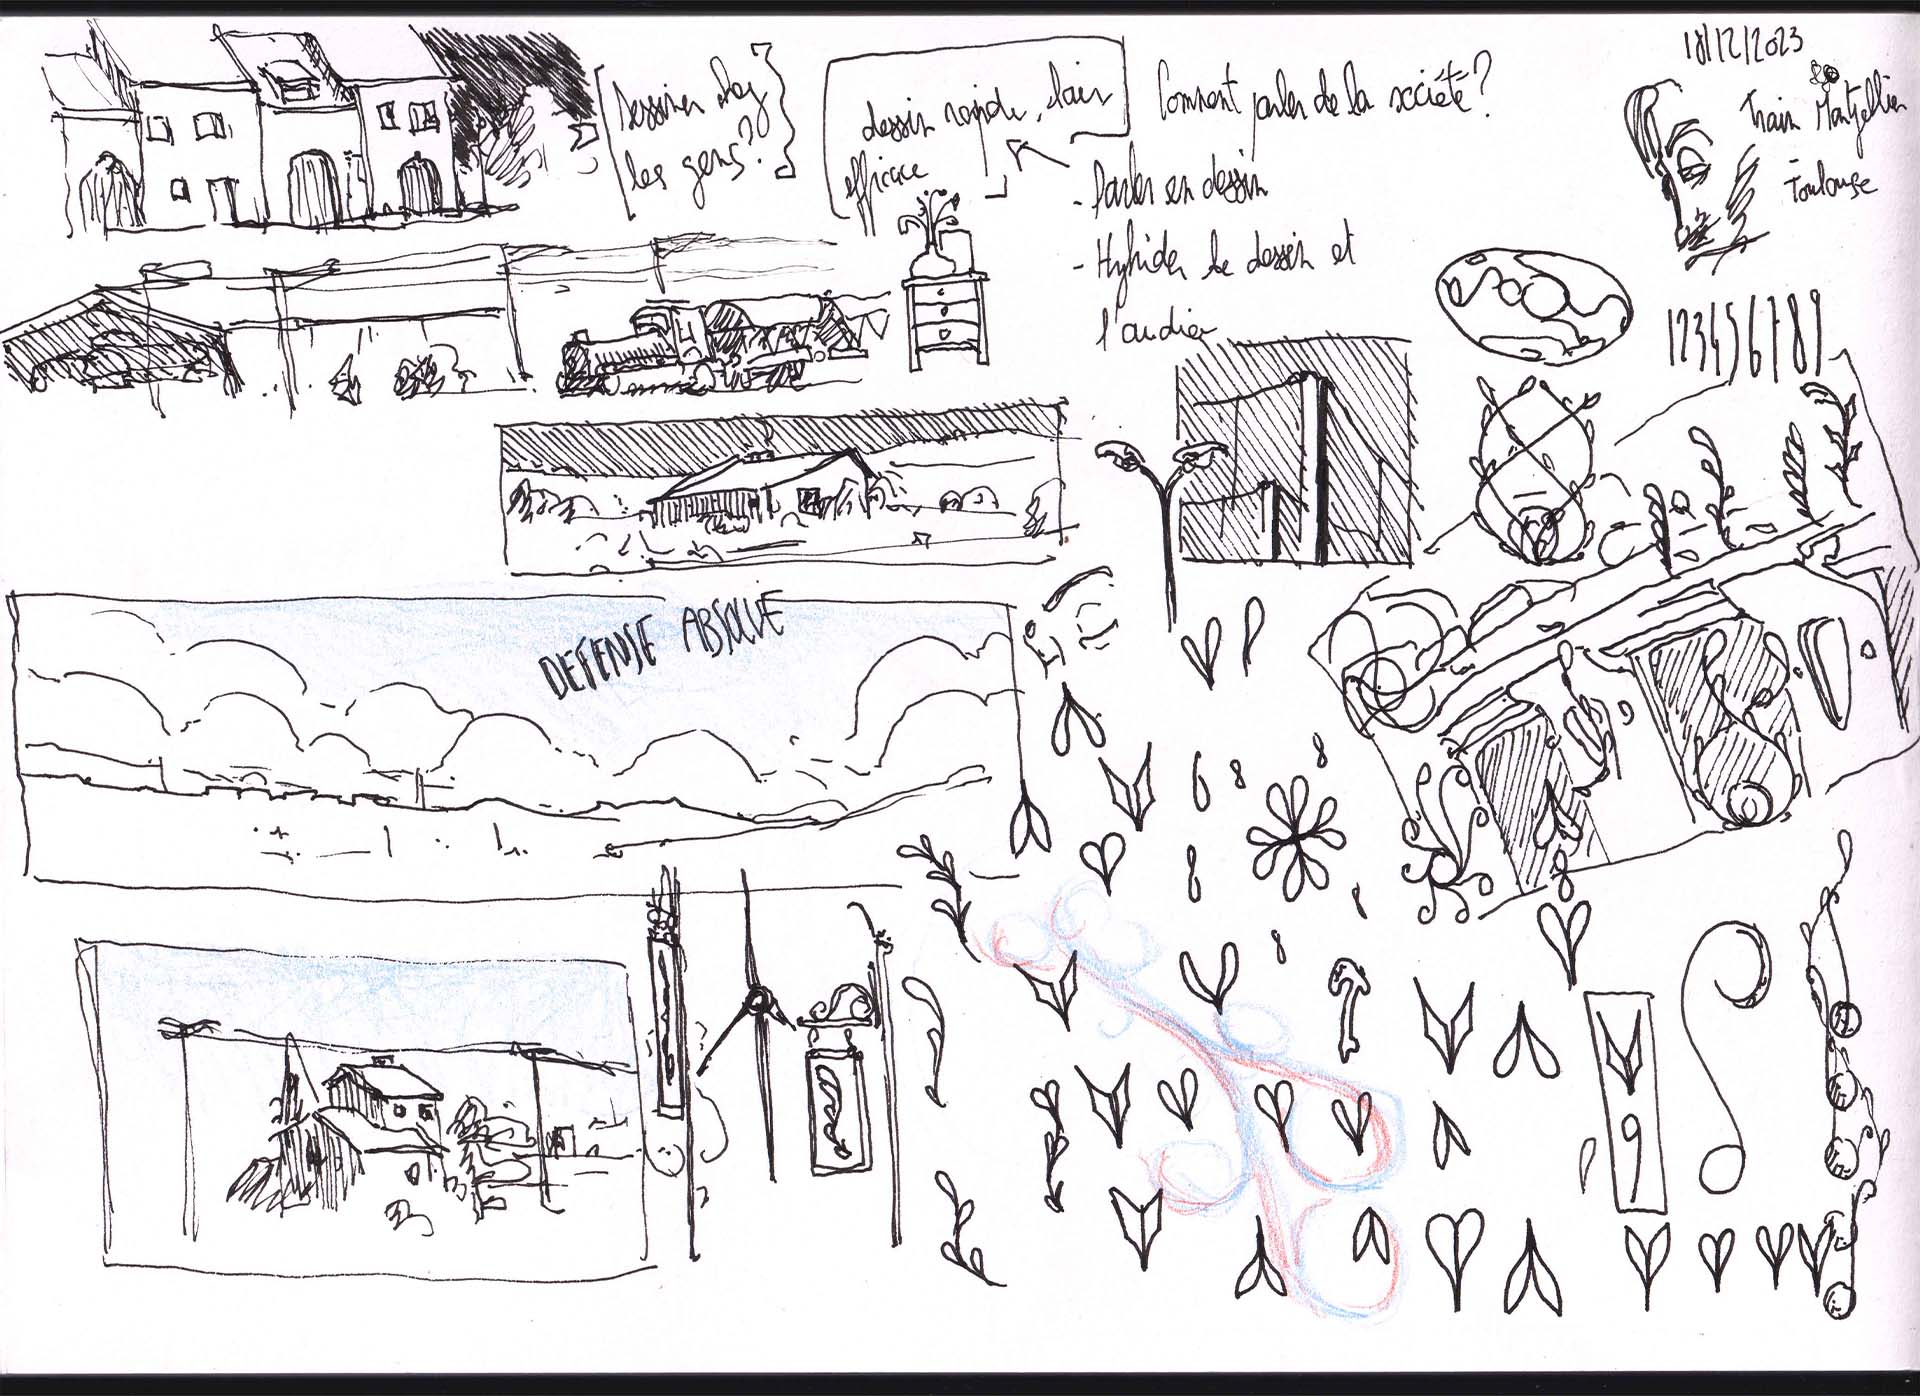 Dessiner chez
les gens?
dessin rapide, clair
efficace
Comment parler de la société?
- Parler en dessin
- Hybrider le dessin et
l'audio
18/12/2023
Train Montpellier
Toulouse
123456789
DEFENSE ABSOLUE
9